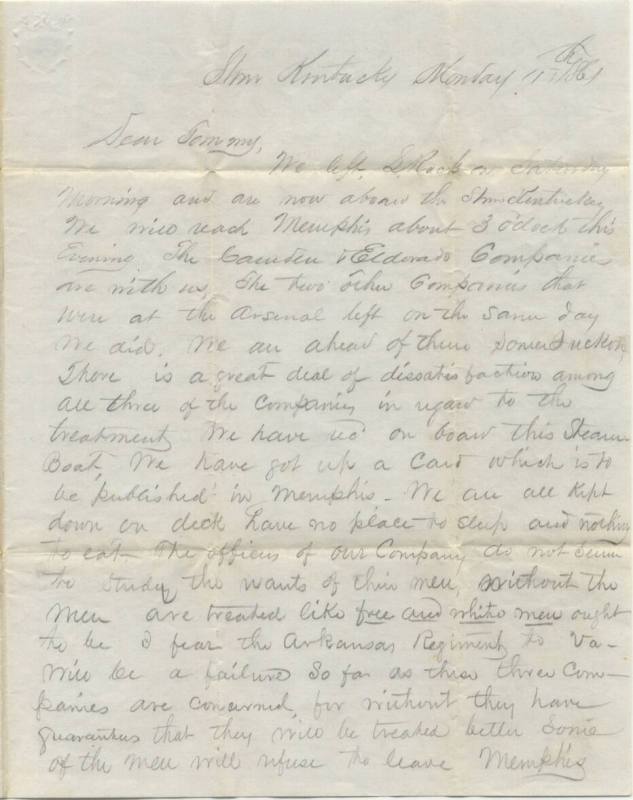 Stmr Kentucky Monday 1861
Dear Tommy,
We left L Rock on Saturday
Morning and are now aboard the Stmr Kentucky
We will reach Memphis about 3 o'clock this
Evening The Camden & Eldorado Companies
are with us, The two other Companies that
were at the Arsenal left on the same day
We did. We are ahead of them
There is a great deal of dissatisfaction among
all three of the Companies in regard to the
treatment We have rec'd on board this Steam
Boat, We have got up a Card which is to
be published in Memphis - We are all kept
down on deck have no place to sleep and nothing
to eat - The officers of our Company do not seem
to study the wants of their men, Without the
men are treated like free and white men ought
to be I fear the Arkansas Regiment to Va -
Will be a failure So far as these three Com-
panies are concerned, for without they have
guarantees that they will be treated better Some
of the men will refuse to leave Memphis